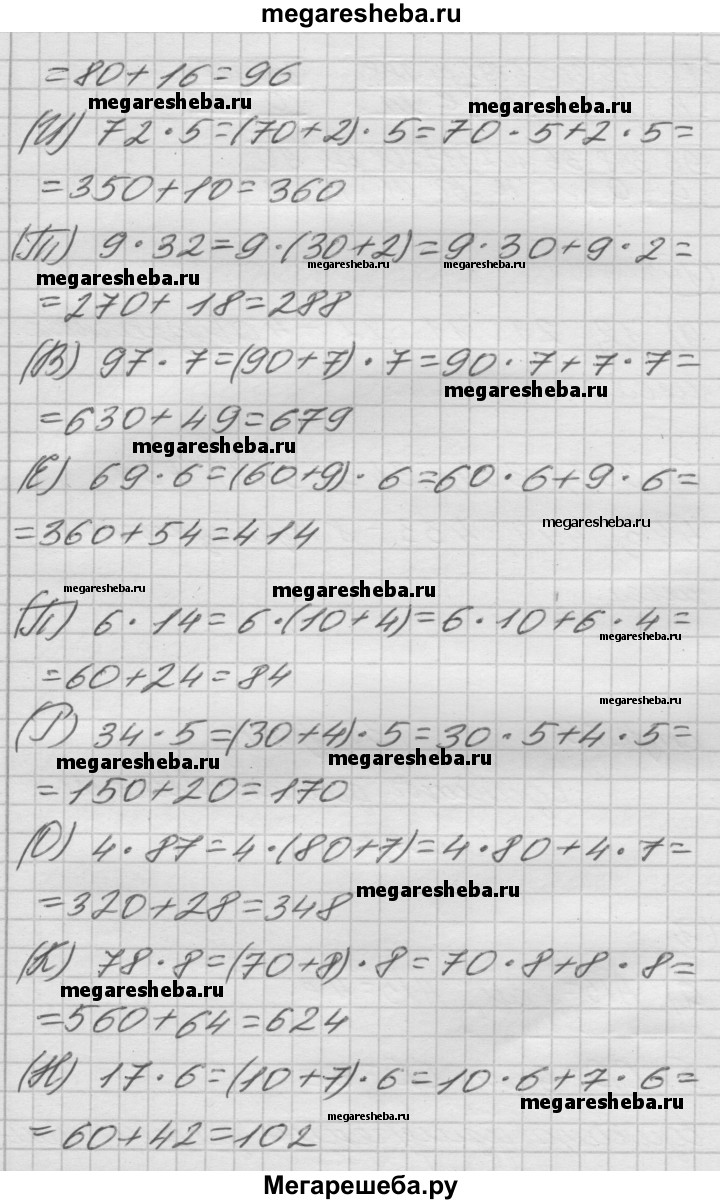 megaresheba.ru
=80+16=96
megaresheba.ru
megaresheba.ru
(И) 72·5=(70+2)·5=70·5+2·5=
=350+10=360
(П) 9·32=9·(30+2)=9·30+9·2=
megaresheba.ru
megaresheba.ru
megaresheba.ru
=270+18=288
(В) 97·7=(90+7)·7=90·7+7·7=
megaresheba.ru
=630+49=679
megaresheba.ru
(Е) 69·6=(60+9)·6=60·6+9·6=
megaresheba.ru
=360+54=414
megaresheba.ru
megaresheba.ru
(П) 6·14=6·(10+4)=6·10+6·4=
megaresheba.ru
=60+24=84
megaresheba.ru
(Р) 34·5=(30+4)·5=30·5+4·5=
megaresheba.ru
megaresheba.ru
=150+20=170
(О) 4·87=4·(80+7)=4·80+4·7=
megaresheba.ru
=320+28=348
(К) 78·8=(70+8)·8=70·8+8·8=
megaresheba.ru
=560+64=624
(Н) 17·6=(10+7)·6=10·6+7·6=
megaresheba.ru
megaresheba.ru
=60+42=102
Мегарешеба.ру